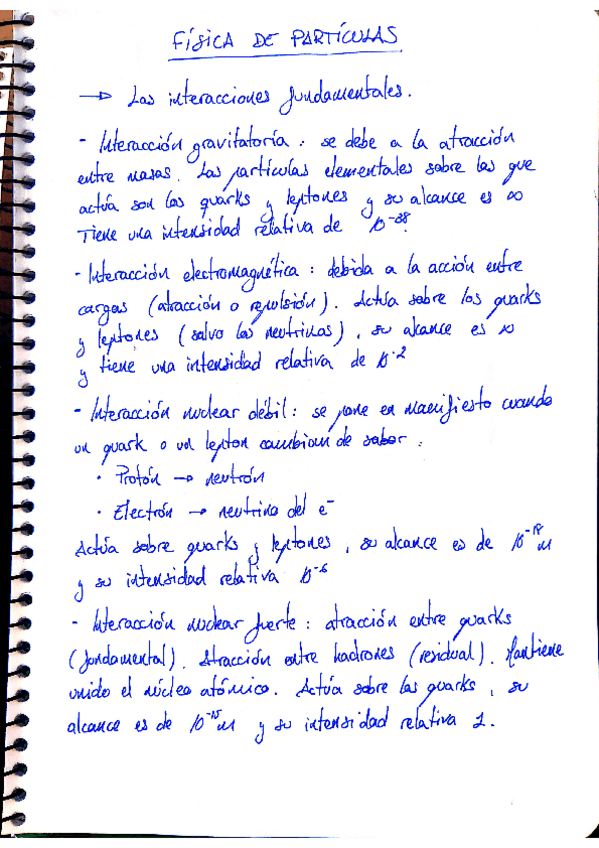 FÍSICA DE PARTÍCULAS
→ Las interacciones fundamentales.
- Interacción gravitatoria: se debe a la atracción
entre masas. Las partículas elementales sobre las que
actúa son los quarks y leptones y su alcance es ∞
Tiene una intensidad relativa de 10⁻³⁸.
- Interacción electromagnética: debida a la acción entre
cargas (atracción o repulsión). Actúa sobre los quarks
y leptones (salvo los neutrinos), su alcance es ∞
y tiene una intensidad relativa de 10⁻²
- Interacción nuclear débil: se pone en manifiesto cuando
un quark o un lepton cambian de sabor:
· Protón → neutrón
· Electrón → neutrino del e⁻
Actúa sobre quarks y leptones, su alcance es de 10⁻¹⁸ m
y su intensidad relativa 10⁻⁶
- Interacción nuclear fuerte: atracción entre quarks
(fundamental). Atracción entre hadrones (residual). Mantiene
unido el núcleo atómico. Actúa sobre los quarks, su
alcance es de 10⁻¹⁵ m y su intensidad relativa 1.